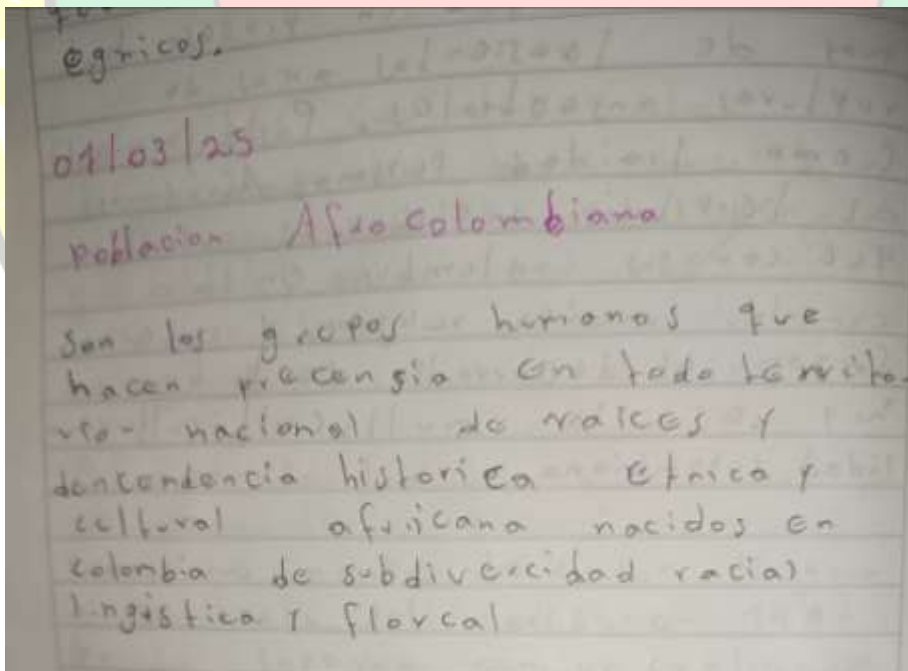 egnicos.
01/03/25
poblacion Afrocolombiana
Son los grupos humanos que
hacen precensia en todo territo-
rio- nacional de raices y
dencendencia historica etnica y
cultural africana nacidos en
colombia de subdivercidad racial
lingistica y florcal